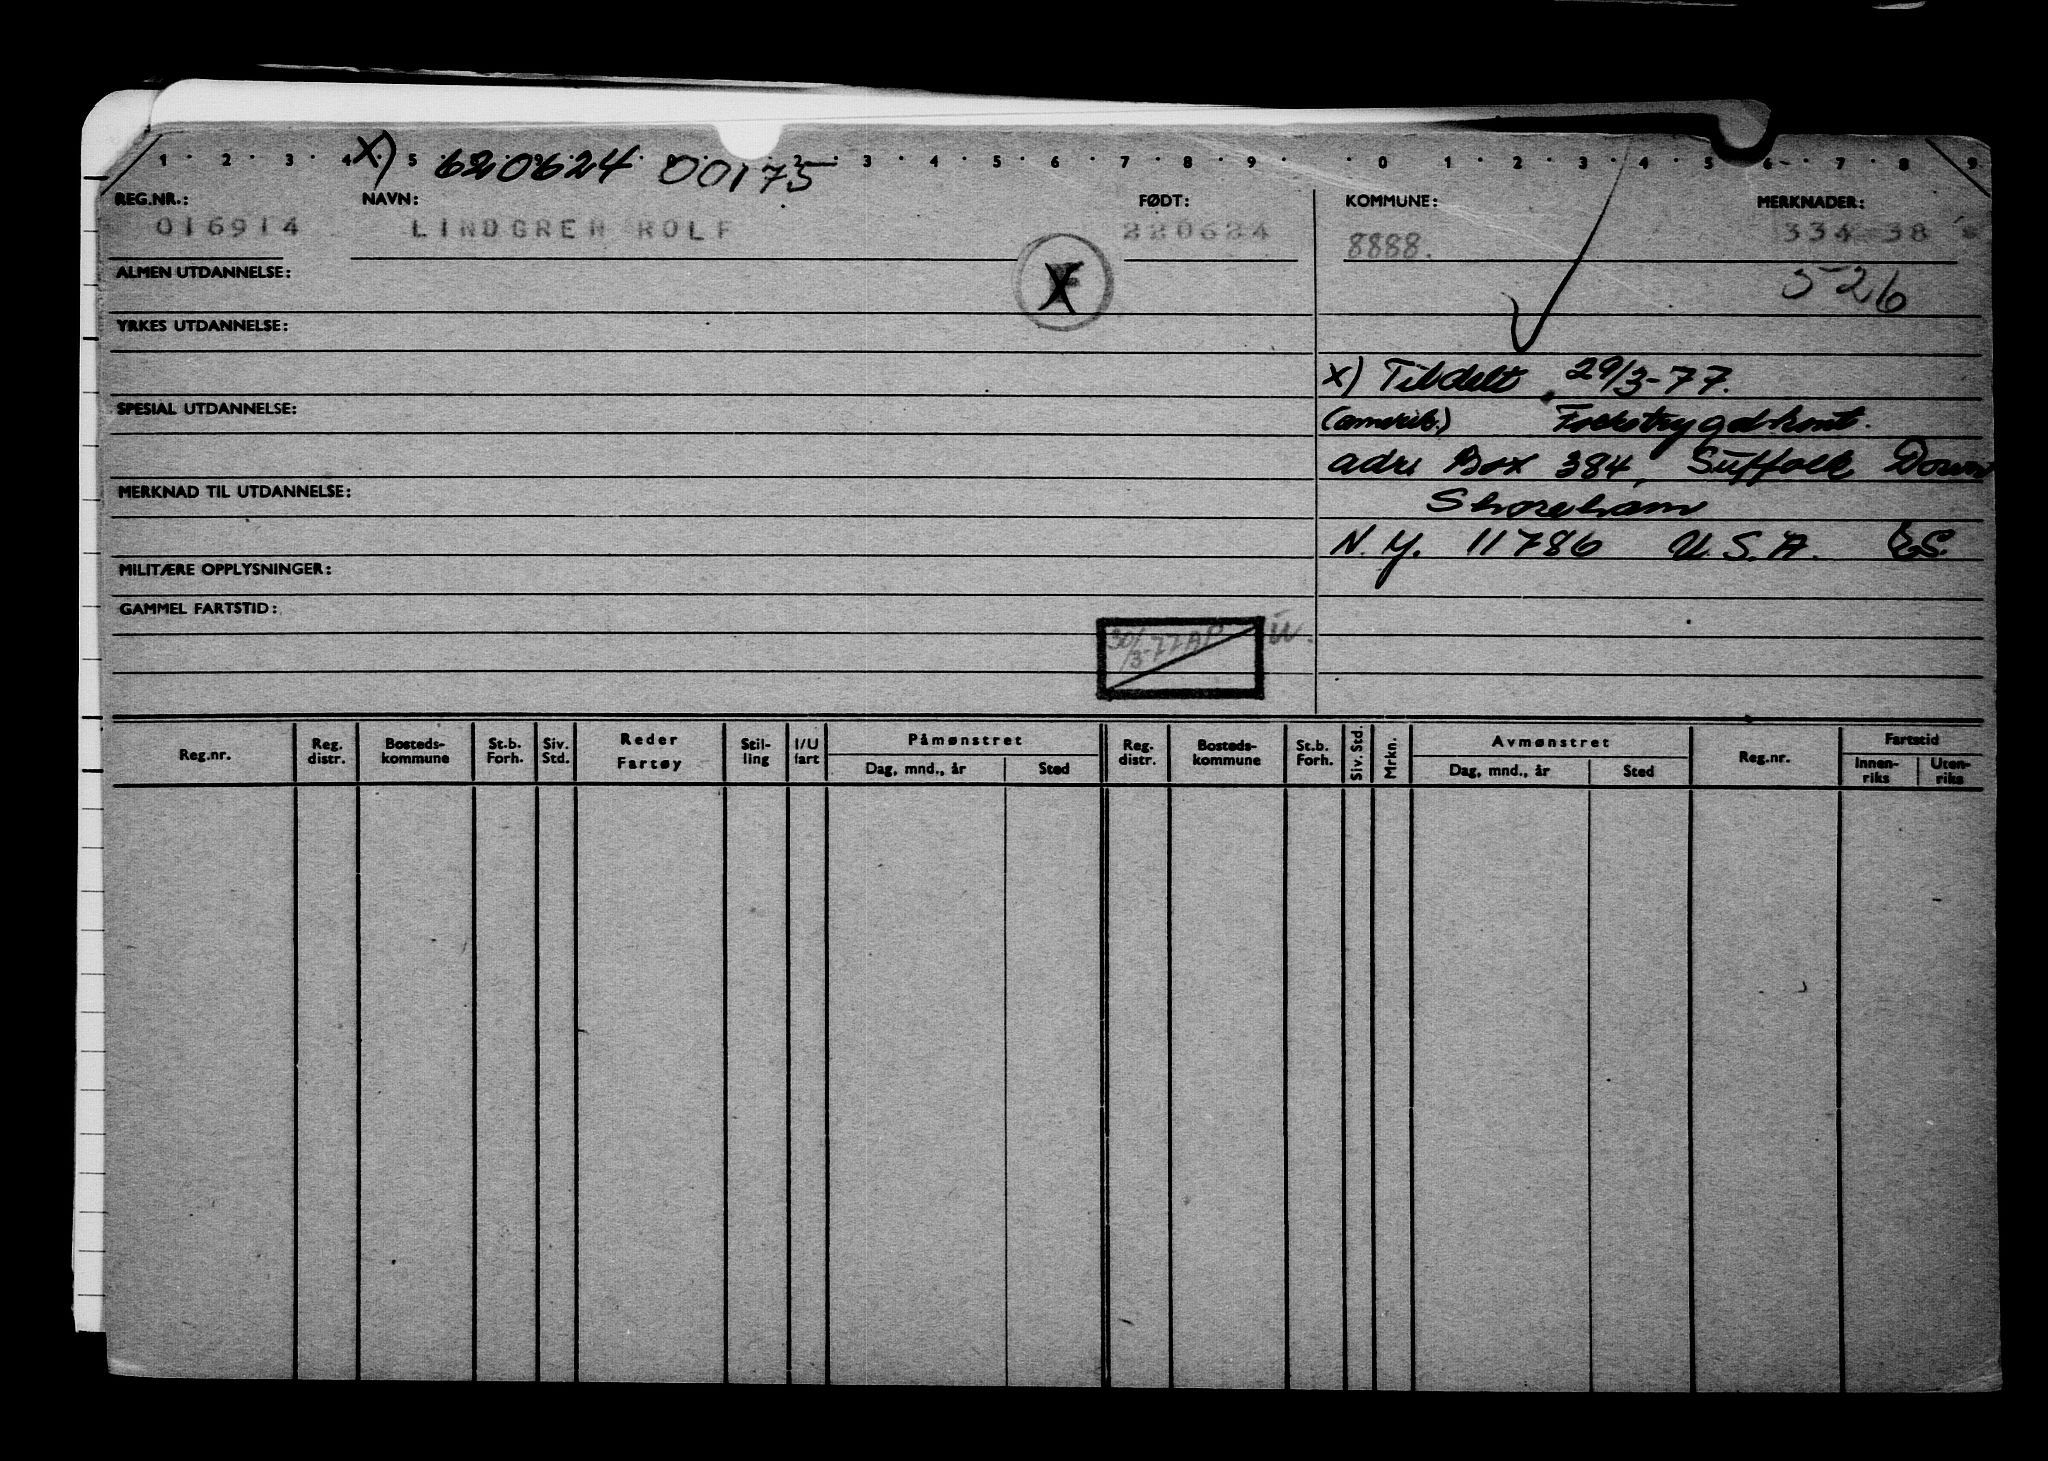 1 2 3 4 5 2 3 4 5 6 7 8 9 0 1 2 3 4 5 6 7 8 9
X) 620624 00175
REG.NR.: NAVN: FØDT: KOMMUNE: MERKNADER:
016914 LINDGREN ROLF 220624 8888. 334 38
ALMEN UTDANNELSE: X 526
YRKES UTDANNELSE:
x) Tildelt 29/3-77.
SPESIAL UTDANNELSE: Folketrygdkont.
adr: Box 384, Suffolk Down
MERKNAD TIL UTDANNELSE: Shoreham
N.Y. 11786 U.S.A.
MILITÆRE OPPLYSNINGER:
GAMMEL FARTSTID:
30/3-77 AP
Reg.nr. Reg. distr. Bosteds-kommune St.b. Forh. Siv. Std. Reder Fartøy Stil-ling I/U fart Påmønstret Dag, mnd., år Sted Reg. distr. Bosteds-kommune St.b. Forh. Siv. Std. Mrkn. Avmønstret Dag, mnd., år Sted Reg.nr. Fartstid Innen-riks Uten-riks